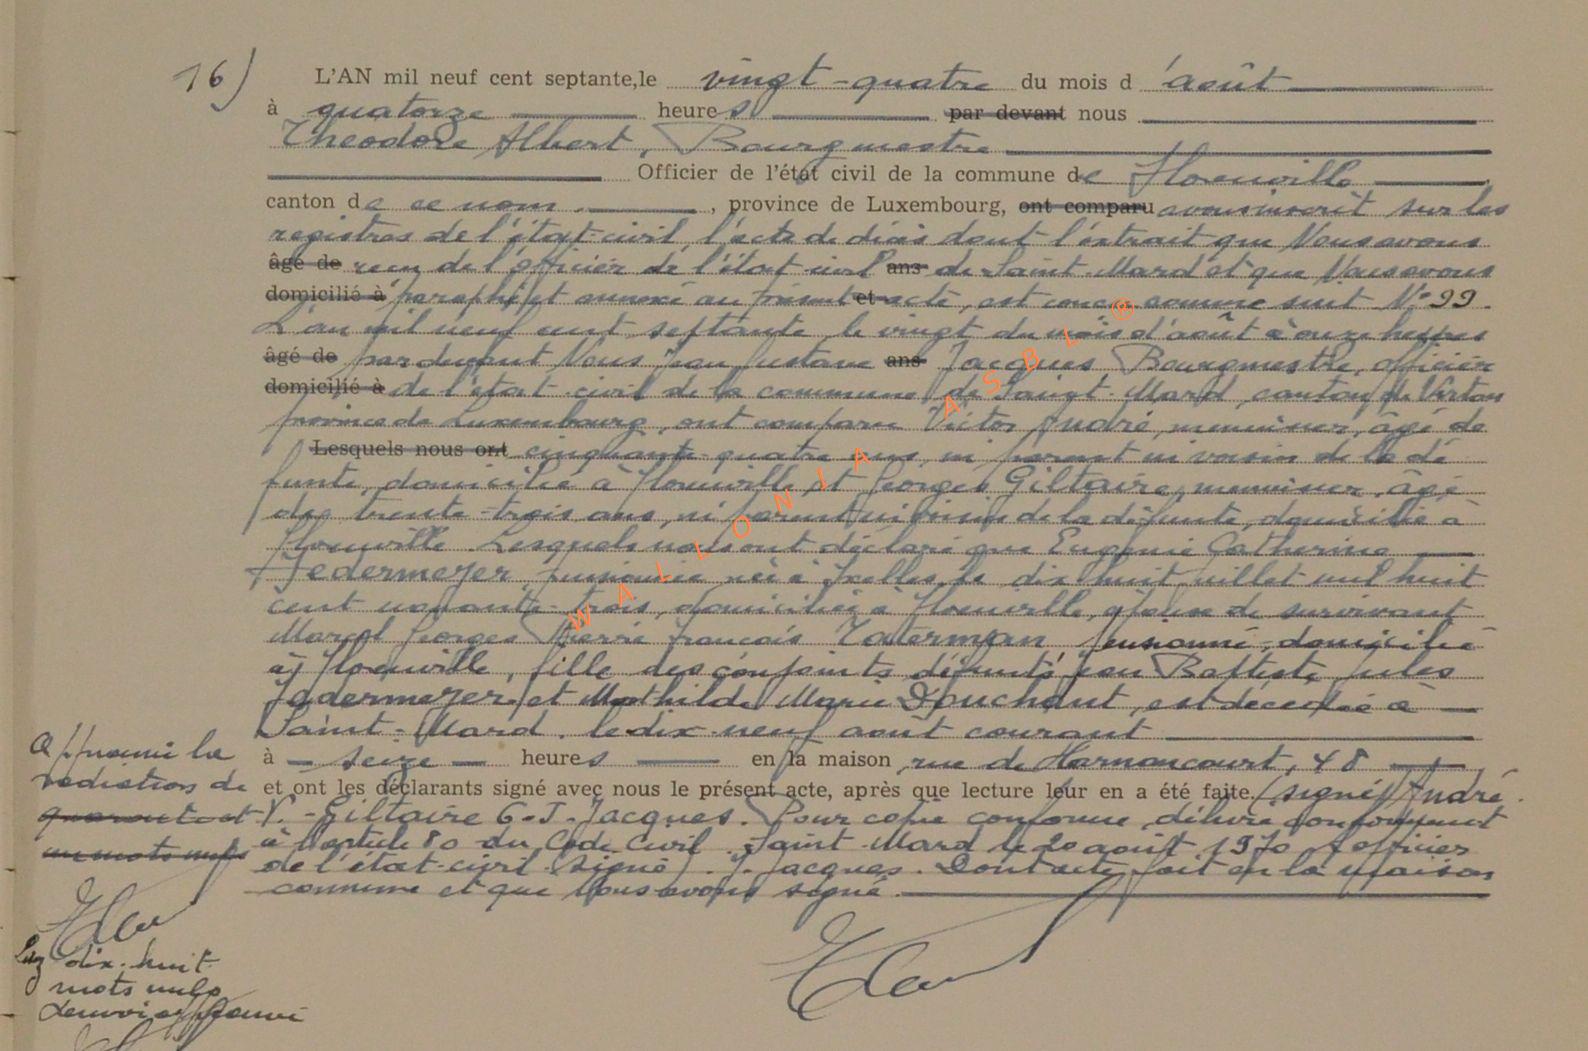 16) L'AN mil neuf cent septante, le vingt-quatre du mois d'août
à quatorze heures par devant nous
Theodore Albert, Bourgmestre
Officier de l'état civil de la commune de Florenville
canton de ce nom, province de Luxembourg, ont comparu avons inscrit sur les
registres de l'état-civil, l'acte de décès dont l'extrait que Nous avons
âgé de reçu de l'officier de l'état civil ans de Saint-Mard et que Nous avons
domicilié à paraphé et annexé au présent et acte, est conçu comme suit N° 99.
L'an mil neuf cent septante, le vingt du mois d'août à onze heures
âgé de par devant Nous Jean Gustave ans Jacques Bourgmestre, officier
domicilié à de l'état-civil de la commune de Saint-Mard, canton de Virton
province de Luxembourg, ont comparu Victor André, menuisier, âgé de
Lesquels nous ont cinquante-quatre ans, ni parent ni voisin de la dé
funte, domicilié à Florenville et Georges Giltaire, menuisier, âgé
de trente-trois ans, ni parent ni voisin de la défunte, domicilié à
Florenville. Lesquels nous ont déclaré que Eugénie Catherine
Federmeyer, pensionnée née à Ixelles, le dix-huit juillet mil huit
cent nonante-trois, domiciliée à Florenville, épouse de survivant
Marcel Georges Pierre François Taterman pensionné, domicilié
à Florenville, fille des conjoints défunts Jean Baptiste Jules
Federmeyer et Mathilde Marie Douchant, est décédée à
Saint-Mard, le dix-neuf août courant
à seize heures en la maison, rue de Harnoncourt, 48
et ont les déclarants signé avec nous le présent acte, après que lecture leur en a été faite. (signé) André
V. - Giltaire G. - J. Jacques. Pour copie conforme, délivré conformément
à l'article 80 du Code Civil. Saint-Mard le 20 août 1970. L'officier
de l'état-civil (signé). J. Jacques. Dont acte fait en la maison
commune et que Nous avons signé.
Approuvé la
radiation de
mots nuls
dix-huit
mots nuls
Renvoi approuvé
WALLONIA ASBL ®